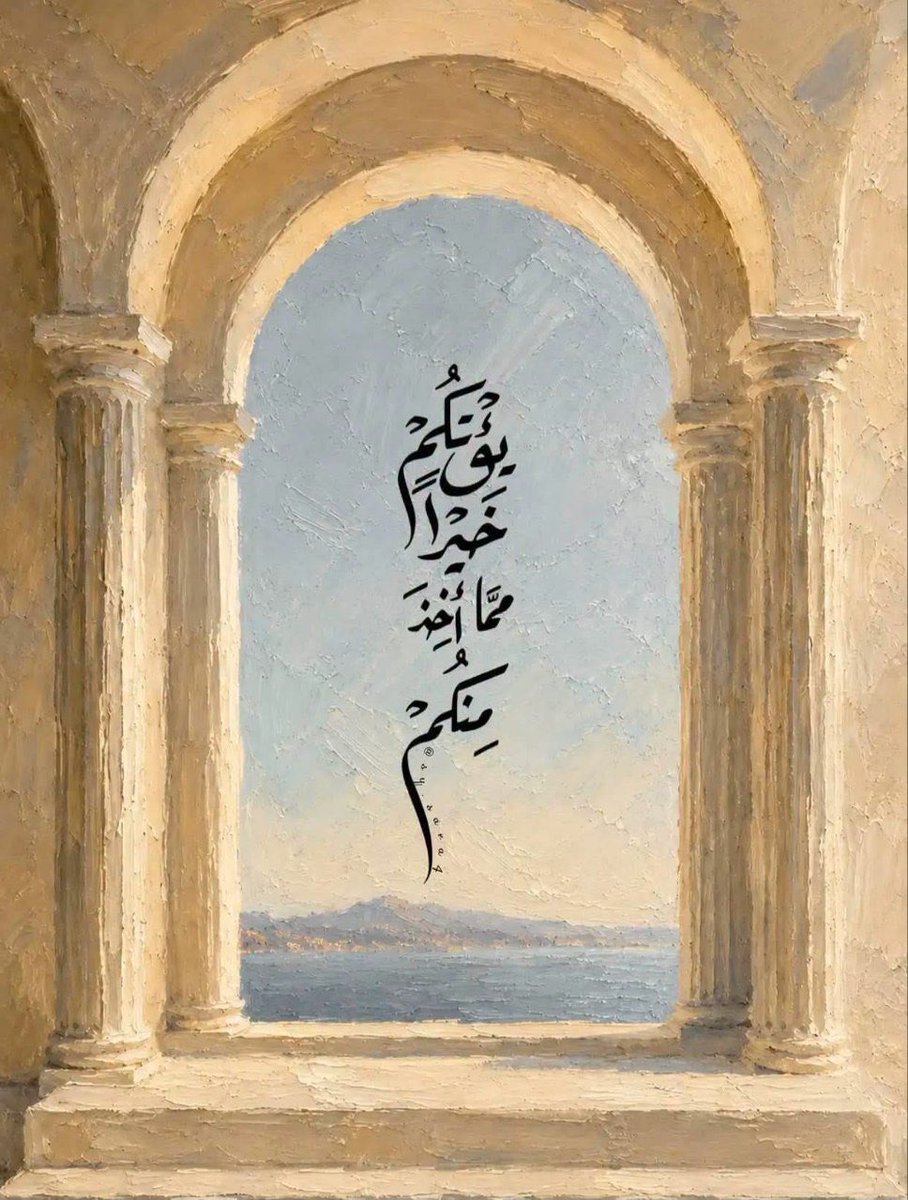 يؤْتكُمْ
خَيْرًا
ممَّا أُخِذَ
مِنكُمْ
@sy.sara4